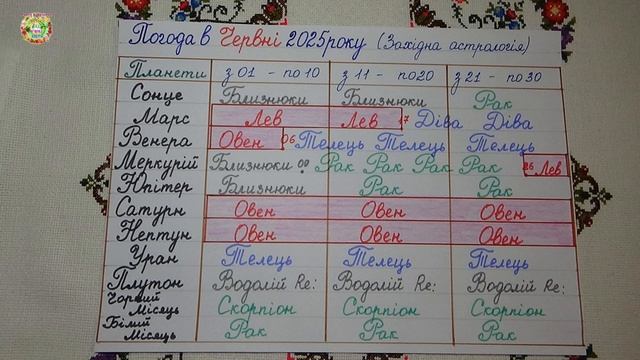 Погода в Червні 2025року (Західна астрологія)
Планети з 01 - по 10 з 11 - по20 з 21 - по30
Сонце Близнюки Близнюки Рак
Марс Лев Лев 17 Діва Діва
Венера Овен 06 Телець Телець Телець
Меркурій Близнюки 09 Рак Рак Рак Рак 26 Лев
Юпітер Близнюки Рак Рак
Сатурн Овен Овен Овен
Нептун Овен Овен Овен
Уран Телець Телець Телець
Плутон Водолій Re: Водолій Re: Водолій Re:
Чорний Місяць Скорпіон Скорпіон Скорпіон
Білий Місяць Рак Рак Рак